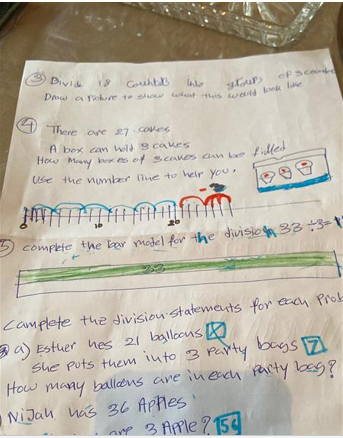 ③ Divide 18 Counters into groups of 3 counters
Draw a picture to show what this would look like
④ There are 27 cakes
A box can hold 3 cakes
How Many boxes of 3 cakes can be filled
Use the number line to help you.
0 10 20
5) complete the bar model for the division 33 ÷ 3 =
33
Complete the division statements for each Prob
a) Esther hes 21 balloons
she puts them into 3 party bags 7
How many balloons are in each party bag?
Nijah has 36 Apples
are 3 Apple?